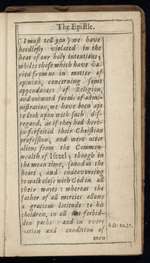 The Epistle.
I must tell you) we have
heedlesly violated in the
heat of our holy intentions;
whilst those which have va-
ried from us in matter of
opinion, concerning some
appendances of Religion,
and outward forms of admi-
nistration, we have been apt
to look upon with such dis-
regard, as if they had there-
fore forfeited their Christian
profession, and were utter
aliens from the Common-
wealth of Israel; though in
the mean time, sound at the
heart, and endeavouring
to walk close with God in all
their wayes: whereas the
father of all mercies allows
a gracious latitude to his
children, in all not forbid-
den paths: and in every
nation and condition of
men